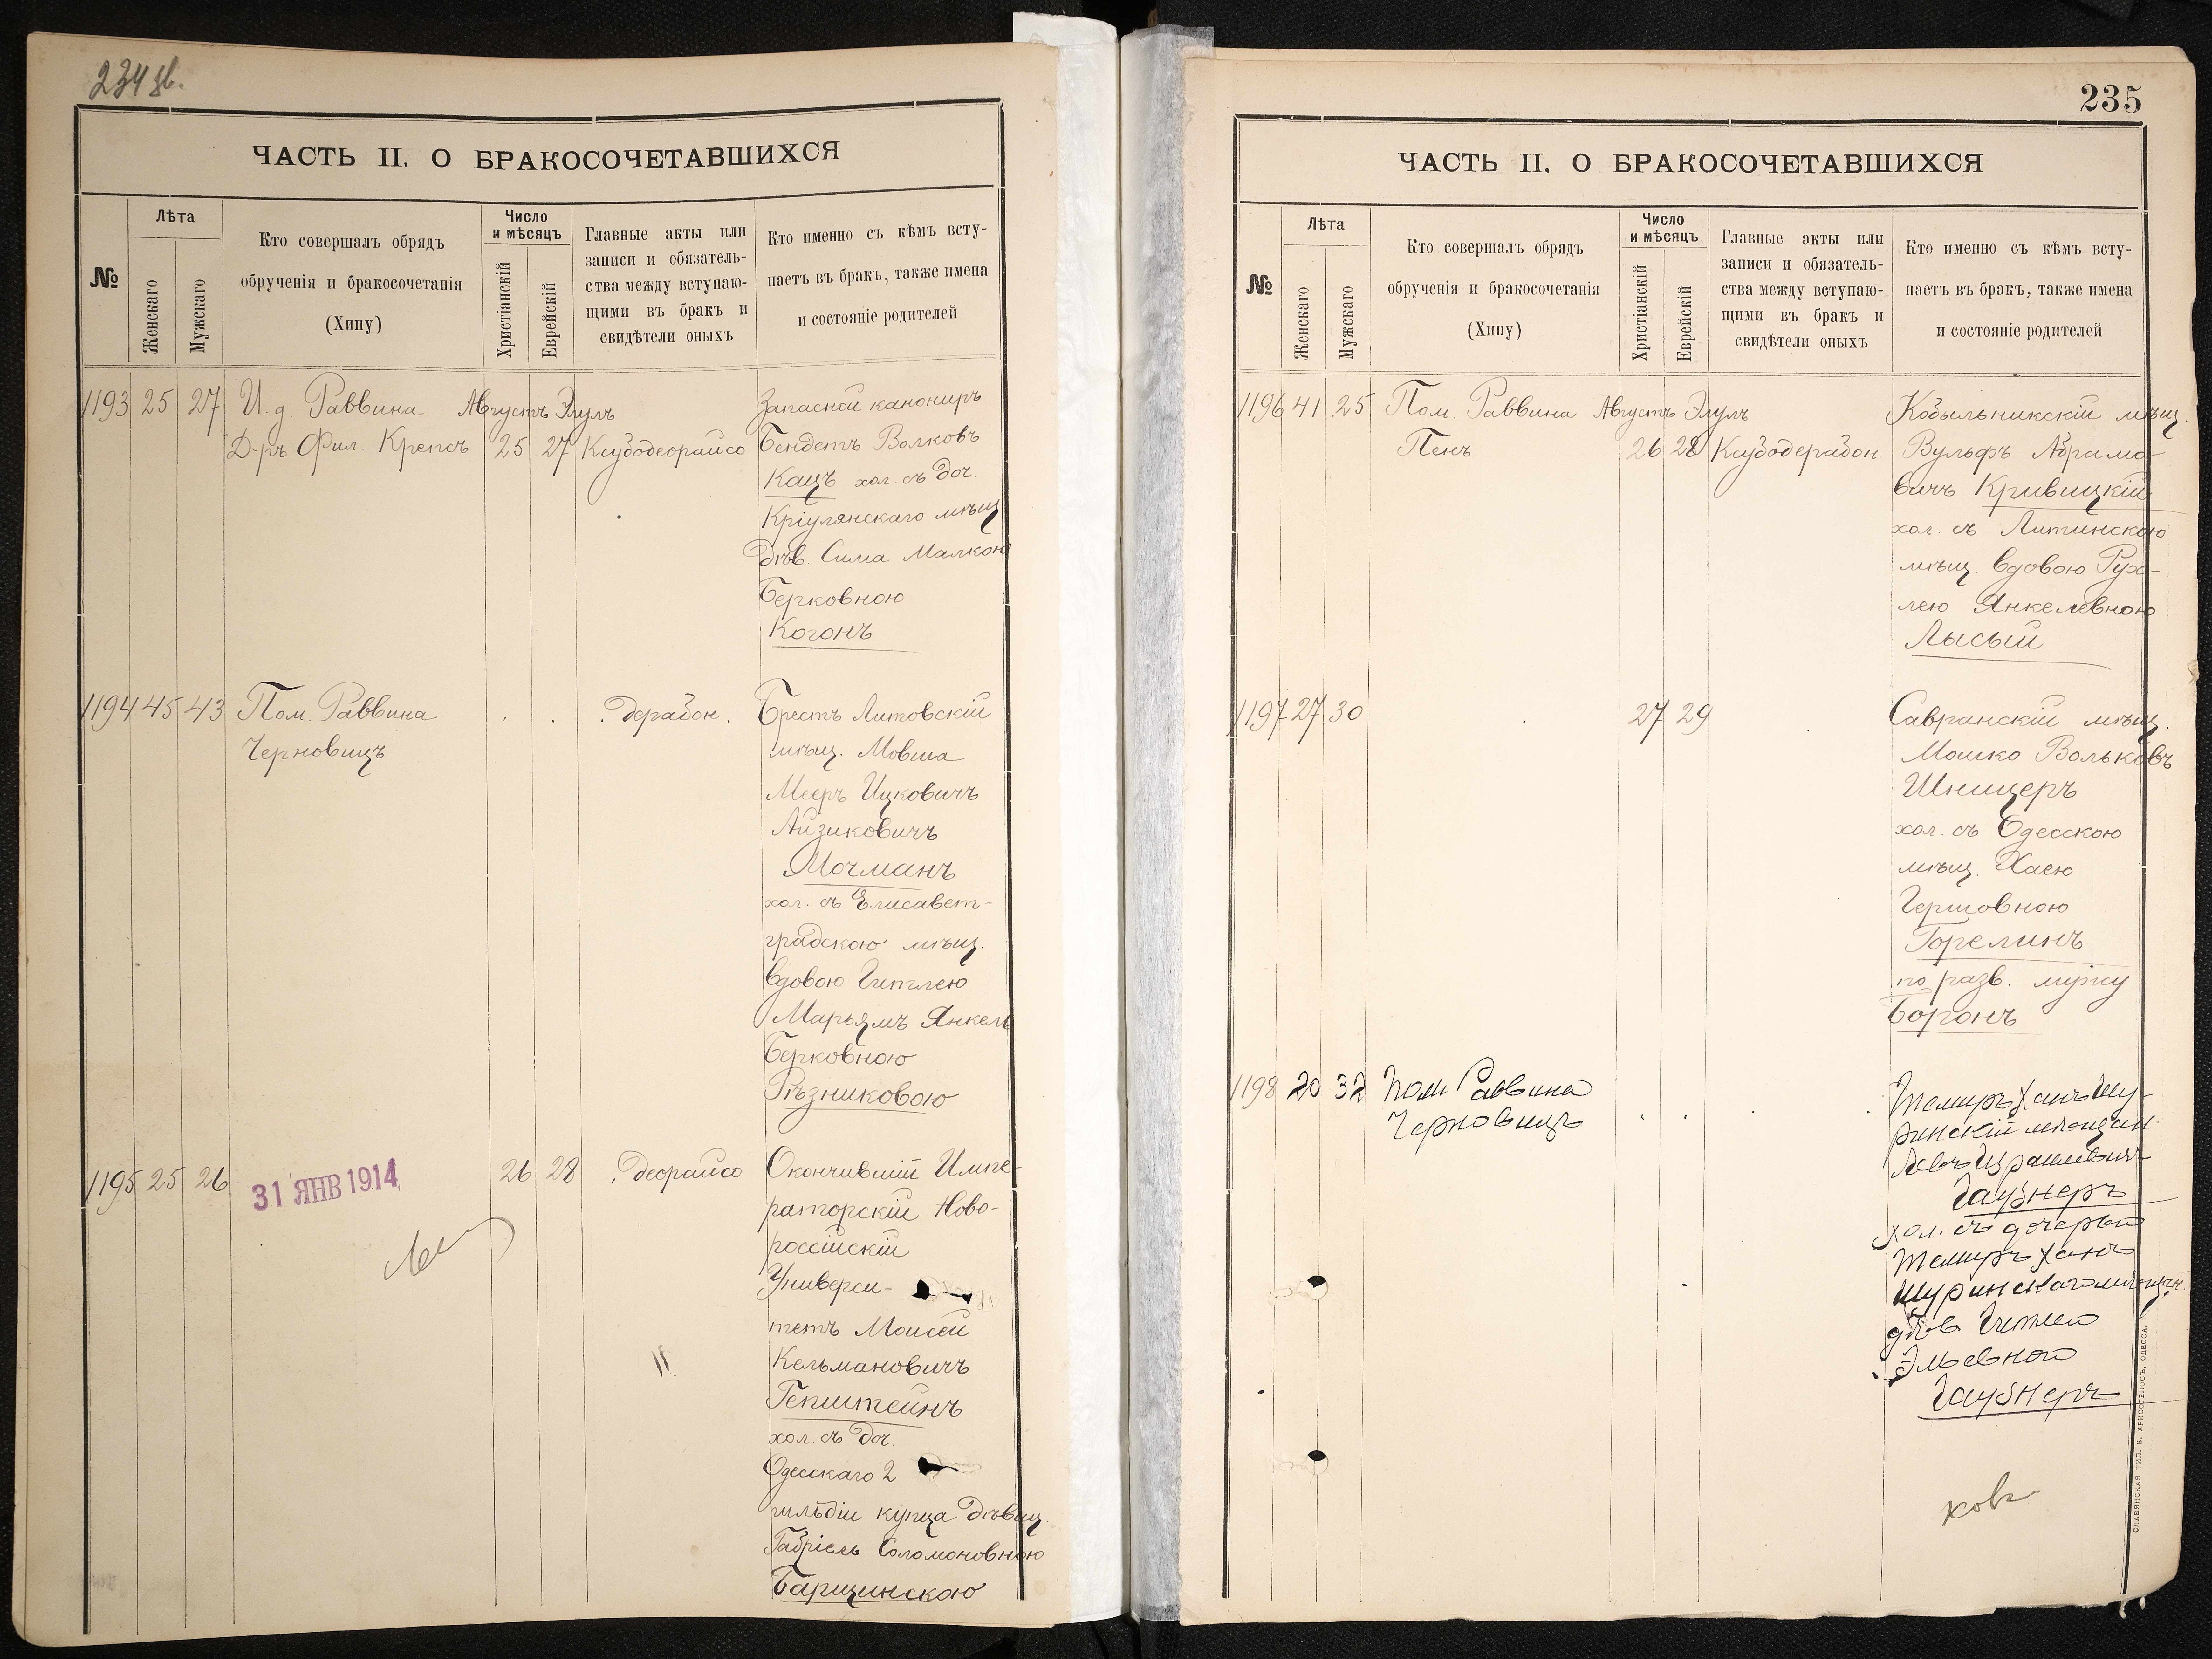 234 зв.
ЧАСТЬ II. О БРАКОСОЧЕТАВШИХСЯ
№
Лѣта
Женскаго
Мужскаго
Кто совершалъ обрядъ
обрученія и бракосочетанія
(Хипу)
Число
и мѣсяцъ
Христіанскій
Еврейскій
Главные акты или
записи и обязатель-
ства между вступаю-
щими въ бракъ и
свидѣтели оныхъ
Кто именно съ кѣмъ всту-
паетъ въ бракъ, также имена
и состояніе родителей
1193 25 27 И. д. Раввина Августъ Элулъ Запасной канониръ
Д-ръ Фил. Крепсъ 25 27 Ксубодеорайсо Бендетъ Волковъ
Кацъ хол. съ доч.
Кріулянскаго мѣщ
дѣв. Сима Малкою
Берковною
Когонъ
1194 45 43 Пом. Раввина . . . дерабон. Брестъ Литовскій
Черновицъ мѣщ. Мовша
Мееръ Ицковичъ
Айзиковичъ
Мочманъ
хол. съ Елисавет-
градскою мѣщ.
вдовою Гитлею
Марьямъ Янкель
Берковною
Рѣзниковою
1195 25 26 31 ЯНВ 1914 26 28 . деорайсо Окончившій Импе-
раторскій Ново-
россійскій
Универси-
тетъ Моисей
Кельмановичъ
Гепштейнъ
хол. съ доч.
Одесскаго 2
гильдіи купца дѣвиц.
Габріель Соломоновною
Барщинскою
235
ЧАСТЬ II. О БРАКОСОЧЕТАВШИХСЯ
№
Лѣта
Женскаго
Мужскаго
Кто совершалъ обрядъ
обрученія и бракосочетанія
(Хипу)
Число
и мѣсяцъ
Христіанскій
Еврейскій
Главные акты или
записи и обязатель-
ства между вступаю-
щими въ бракъ и
свидѣтели оныхъ
Кто именно съ кѣмъ всту-
паетъ въ бракъ, также имена
и состояніе родителей
1196 41 25 Пом. Раввина Августъ Элулъ Кобыльникскій мѣщ.
Пенъ 26 28 Ксубодерабон. Вульфъ Абрамо-
вичъ Кривицкій
хол. съ Литинскою
мѣщ. вдовою Рух-
лею Янкелевною
Лысый
1197 27 30 . 27 29 . Савранскій мѣщ.
Мошко Вольковъ
Шницеръ
хол. съ Одесскою
мѣщ. Хаею
Гершовною
Горелинъ
по разв. мужу
Боронъ
1198 20 32 Пом Раввина Темиръ Ханъ Шу-
Черновицъ . . . ринскій мѣщан.
Левъ Израилевичъ
Гаубнеръ
хол. съ дочерью
Темиръ ханъ
Шуринскаго мѣщан.
дѣв. Гитлею
Эльевною
Гаубнеръ
СЛАВЯНСКАЯ ТИП. Е. ХРИСОГЕЛОСЪ, ОДЕССА.